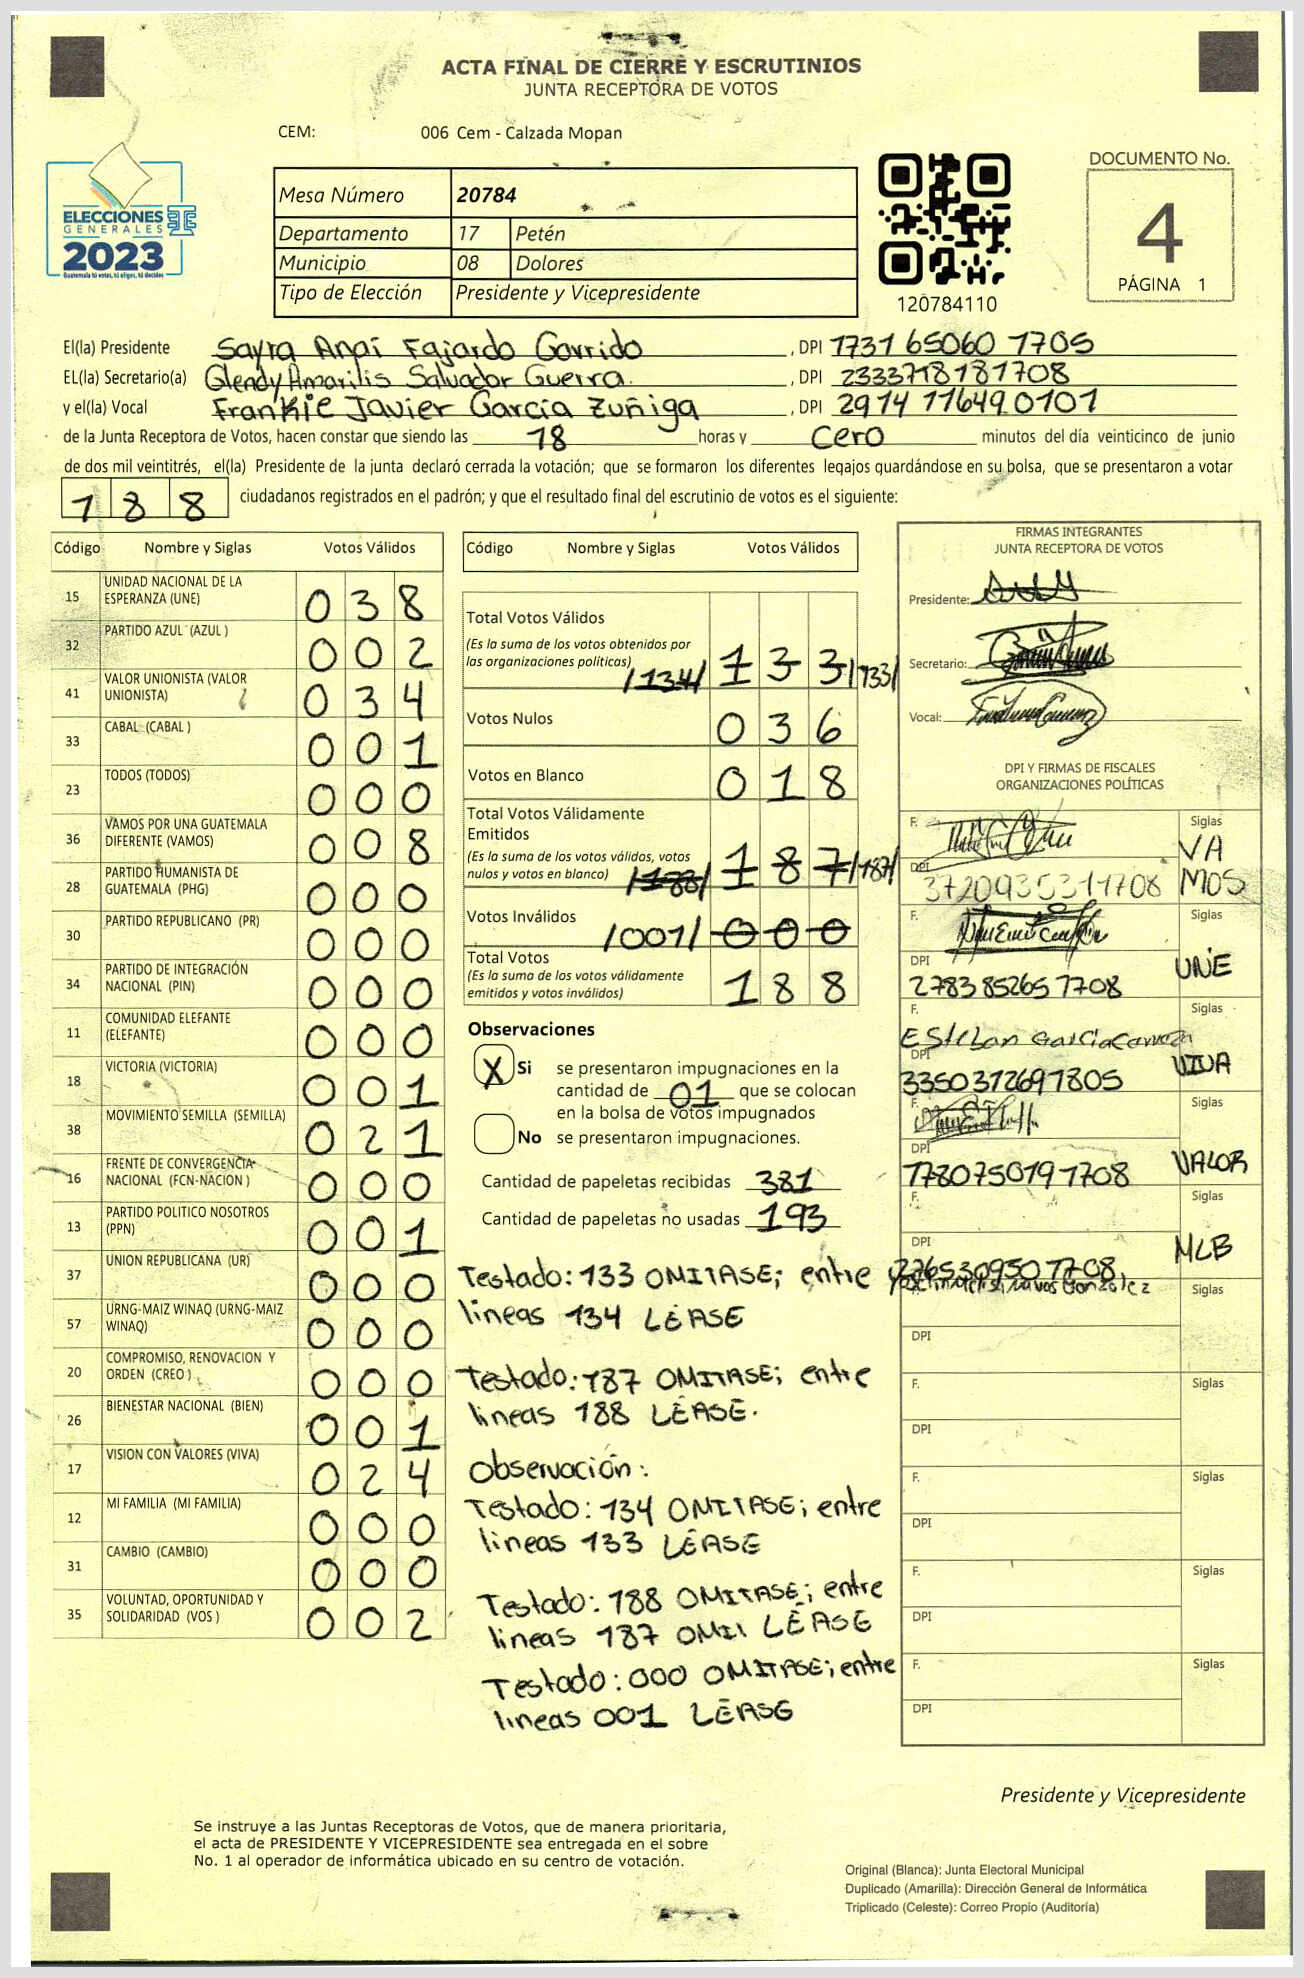 ACTA FINAL DE CIERRE Y ESCRUTINIOS
JUNTA RECEPTORA DE VOTOS
CEM: 006 Cem - Calzada Mopan
ELECCIONES
GENERALES
2023
Guatemala tú votas, tú eliges, tú decides
Mesa Número 20784
Departamento 17 Petén
Municipio 08 Dolores
Tipo de Elección Presidente y Vicepresidente
120784110
DOCUMENTO No.
4
PÁGINA 1
El(la) Presidente Sayra Anai Fajardo Garrido, DPI 1731 65060 1705
EL(la) Secretario(a) Glendy Amarilis Salvador Guerra., DPI 2333718181708
y el(la) Vocal Frankie Javier García Zuñiga, DPI 2914 11649 0101
de la Junta Receptora de Votos, hacen constar que siendo las 18 horas y Cero minutos del día veinticinco de junio
de dos mil veintitrés, el(la) Presidente de la junta declaró cerrada la votación; que se formaron los diferentes legajos guardándose en su bolsa, que se presentaron a votar
188 ciudadanos registrados en el padrón; y que el resultado final del escrutinio de votos es el siguiente:
Código Nombre y Siglas Votos Válidos
15 UNIDAD NACIONAL DE LA ESPERANZA (UNE) 0 3 8
32 PARTIDO AZUL (AZUL ) 0 0 2
41 VALOR UNIONISTA (VALOR UNIONISTA) 0 3 4
33 CABAL (CABAL ) 0 0 1
23 TODOS (TODOS) 0 0 0
36 VAMOS POR UNA GUATEMALA DIFERENTE (VAMOS) 0 0 8
28 PARTIDO HUMANISTA DE GUATEMALA (PHG) 0 0 0
30 PARTIDO REPUBLICANO (PR) 0 0 0
34 PARTIDO DE INTEGRACIÓN NACIONAL (PIN) 0 0 0
11 COMUNIDAD ELEFANTE (ELEFANTE) 0 0 0
18 VICTORIA (VICTORIA) 0 0 1
38 MOVIMIENTO SEMILLA (SEMILLA) 0 2 1
16 FRENTE DE CONVERGENCIA NACIONAL (FCN-NACION ) 0 0 0
13 PARTIDO POLITICO NOSOTROS (PPN) 0 0 1
37 UNION REPUBLICANA (UR) 0 0 0
57 URNG-MAIZ WINAQ (URNG-MAIZ WINAQ) 0 0 0
20 COMPROMISO, RENOVACION Y ORDEN (CREO ) 0 0 0
26 BIENESTAR NACIONAL (BIEN) 0 0 1
17 VISION CON VALORES (VIVA) 0 2 4
12 MI FAMILIA (MI FAMILIA) 0 0 0
31 CAMBIO (CAMBIO) 0 0 0
35 VOLUNTAD, OPORTUNIDAD Y SOLIDARIDAD (VOS ) 0 0 2
Código Nombre y Siglas Votos Válidos
Total Votos Válidos
(Es la suma de los votos obtenidos por
las organizaciones políticas) /134/ 1 3 3 /133/
Votos Nulos 0 3 6
Votos en Blanco 0 1 8
Total Votos Válidamente
Emitidos
(Es la suma de los votos válidos, votos
nulos y votos en blanco) /188/ 1 8 7 /187/
Votos Inválidos /001/ 0 0 0
Total Votos
(Es la suma de los votos válidamente
emitidos y votos inválidos) 1 8 8
Observaciones
X Si se presentaron impugnaciones en la
cantidad de 01 que se colocan
en la bolsa de votos impugnados
No se presentaron impugnaciones.
Cantidad de papeletas recibidas 381
Cantidad de papeletas no usadas 193
Testado: 133 OMITASE; entre
lineas 134 LÉASE
Testado: 187 OMITASE; entre
lineas 188 LÉASE.
Observación:
Testado: 134 OMITASE; entre
lineas 133 LÉASE
Testado: 188 OMITASE; entre
lineas 187 OMII LÉASE
Testado: 000 OMITASE; entre
lineas 001 LÉASE
FIRMAS INTEGRANTES
JUNTA RECEPTORA DE VOTOS
Presidente:
Secretario:
Vocal:
DPI Y FIRMAS DE FISCALES
ORGANIZACIONES POLÍTICAS
F. Siglas
VA
MOS
DPI
3720935311708
F. Siglas
UNE
DPI
2783852651708
F. Siglas
Esteban Garcia
DPI VIVA
3350372691805
F. Siglas
DPI
1780750191708 VALOR
F. Siglas
DPI MLB
2265309501708
F. Siglas
DPI
F. Siglas
DPI
F. Siglas
DPI
F. Siglas
DPI
F. Siglas
DPI
Presidente y Vicepresidente
Se instruye a las Juntas Receptoras de Votos, que de manera prioritaria,
el acta de PRESIDENTE Y VICEPRESIDENTE sea entregada en el sobre
No. 1 al operador de informática ubicado en su centro de votación.
Original (Blanca): Junta Electoral Municipal
Duplicado (Amarilla): Dirección General de Informática
Triplicado (Celeste): Correo Propio (Auditoría)